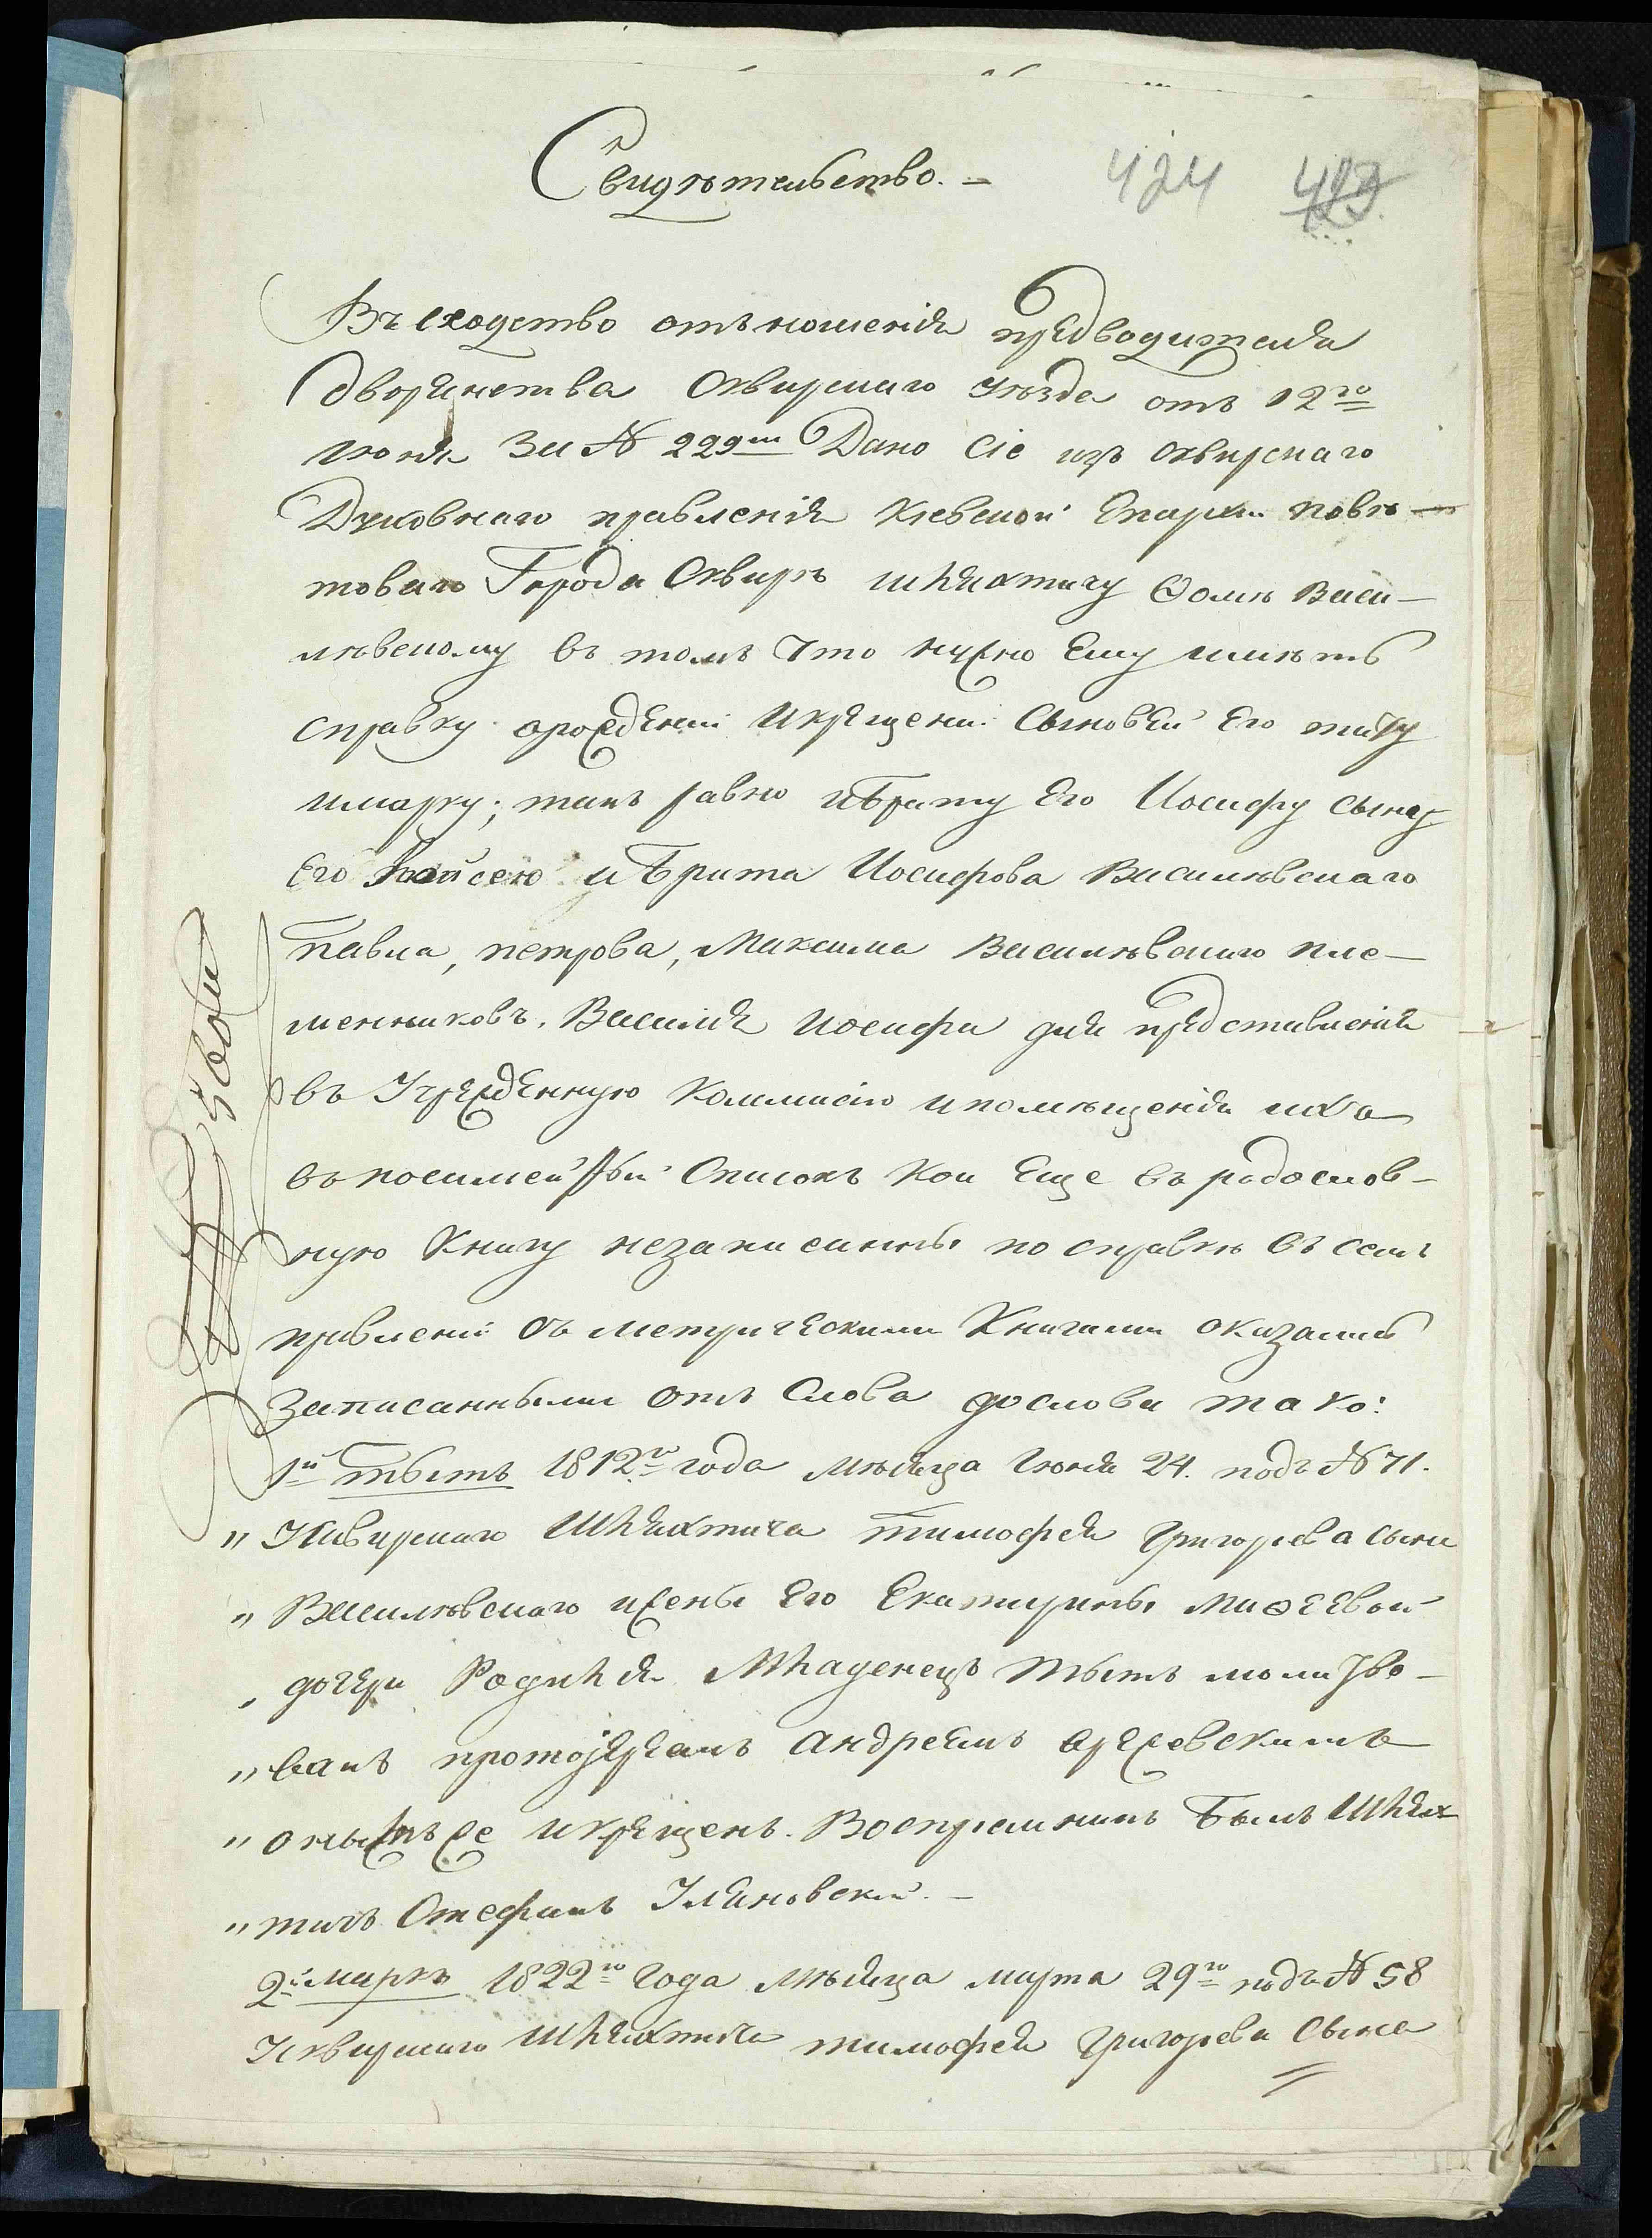 Свидѣтельство. –
424 423
Въ сходство отъношенія предводителя
дворянства Сквирскаго уѣзда отъ 12го
Іюня За № 229м Дано сіе изъ Сквирскаго
Духовнаго правленія Кіевской Епархіи повѣ–
товаго Города Сквиръ шляхтичу Ѳомѣ Васи–
лѣвскому въ томъ что нужно Ему имѣть
справку орожденіи икрещеніи Сыновей Его титу
имарку; такъ равно ибрату Его Иосифу сыну
Его и брата Иосифова Василѣвскаго
павла, петрова, Максима Василѣвскаго пле–
менниковъ. Василія Иосифа для представленія
въ Учрежденную Коммисію ипомѣщенія ихъ
въ посимейный Списокъ кои Еще въ родослов–
ную Книгу незаписанны по справкѣ въ семъ
правленіи съ метрическими Книгами оказались
записанными отъ Слова дослова тако:
1й титъ 1812го года мѣсяца Іюня 24. подъ № 71.
„ Усквирскаго Шляхтича тимофея Григорьева сына
„ Василѣвскаго ижены Его Екатирины Маѳеевой
„ дочери Родился Младенецъ титъ молитво–
„ ванъ протоіереемъ андреемъ
„ онымъ же икрещенъ. Воспріемникъ былъ Шлях
„ тичъ Стефанъ Уляновскій. –
2й маркъ 1822го года мѣсяца марта 29го подъ № 58
Усквирскаго Шляхтича тимофея Григорьева Сына